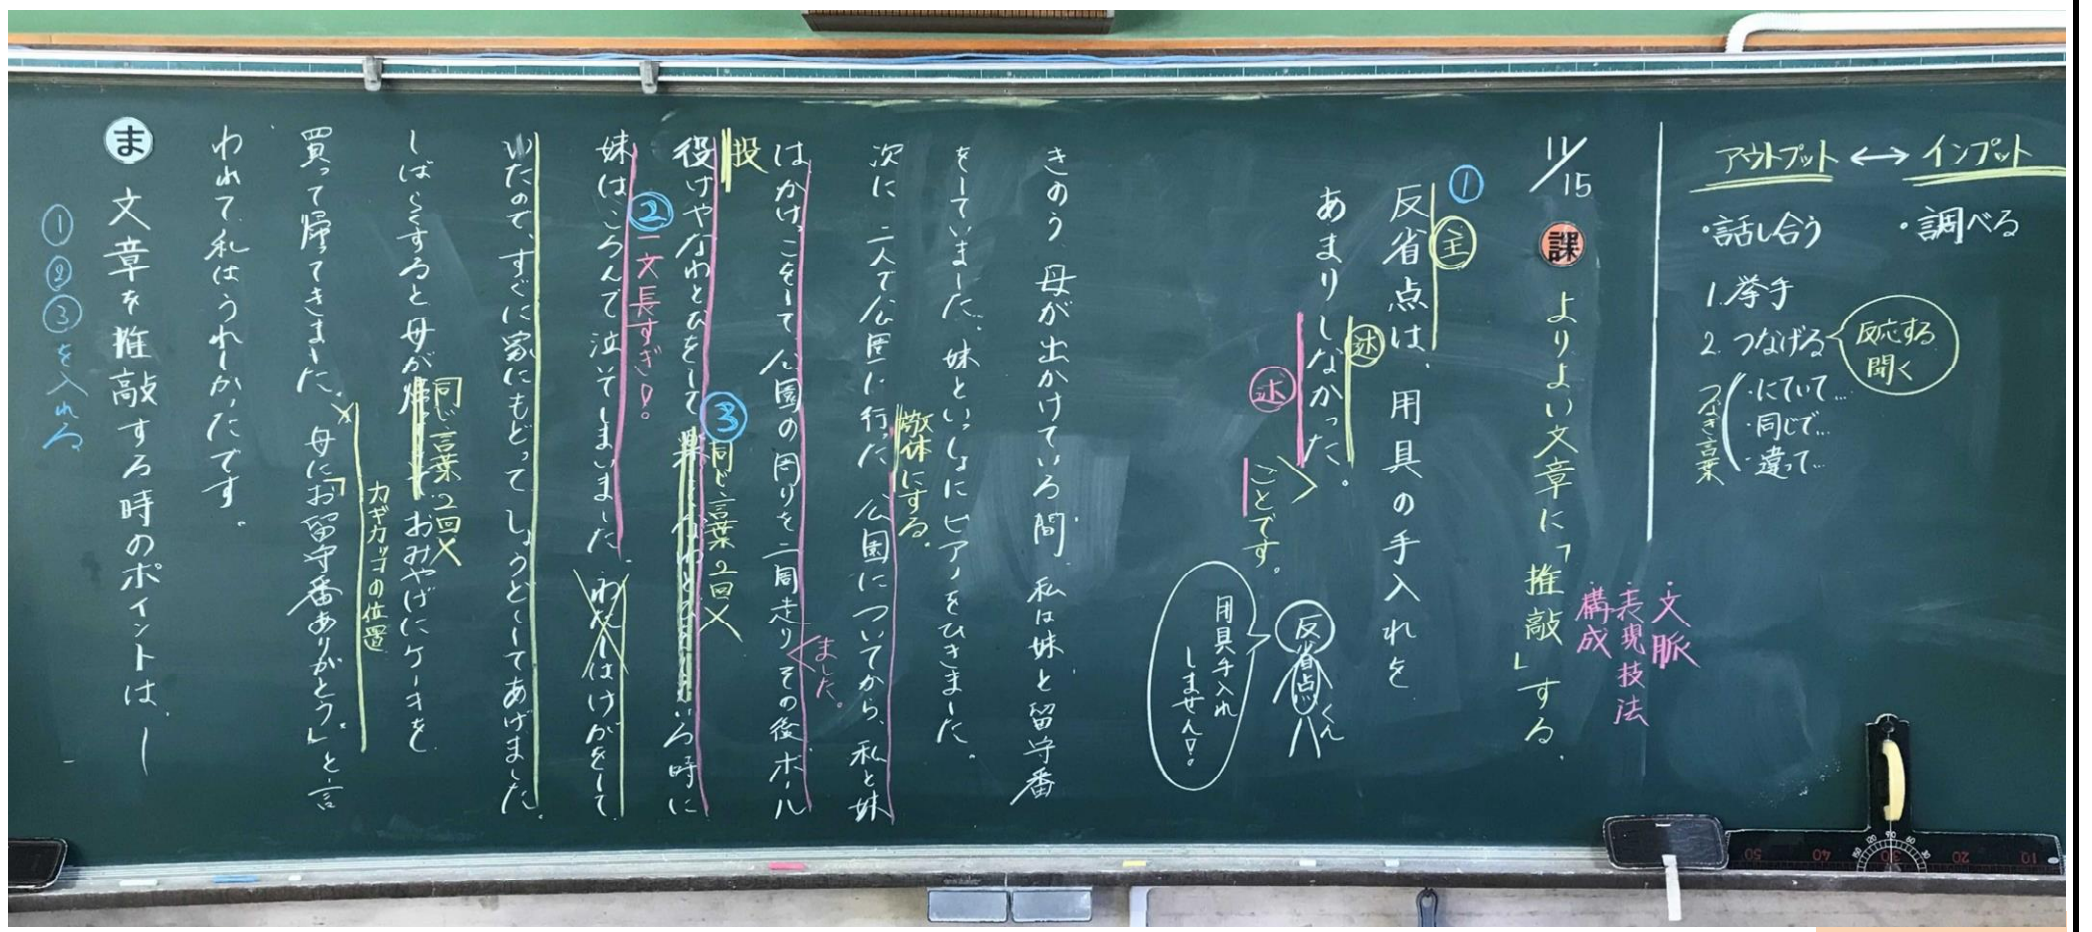 インプット ↔ アウトプット
・調べる
・話し合う
1.挙手
2.つなげる
反応する
聞く
つなぎ言葉
・にていて…
・同じで…
・違って…
11/15
課 よりよい文章に「推敲」する。
・文脈
・表現技法
・構成
①
主
反省点は、用具の手入れを
述
あまりしなかった。
述
ことです。
反省点くん
用具手入れ
しません!
きのう、母が出かけている間、私は妹と留守番
をしていました。妹といっしょにピアノをひきました。
敬体にする。
次に二人で公園に行た。公園についてから、私と妹
ました。
はかけっこをして、公園の周りを二周走り、その後、ボール
投
③同じ言葉2回×
役げやなわとびをして
いる時に
②一文長すぎ!。
妹はころんで泣いてしまいました。わたしはけがをして
いたので、すぐに家にもどってしょうどくしてあげました。
同じ言葉2回×
しばらくすると母が
おみやげにケーキを
カギカッコの位置
買って帰ってきました。母にお留守番ありがとう。」と言
われて、私はうれしかったです。
ま 文章を推敲する時のポイントは、―
①②③を入れる